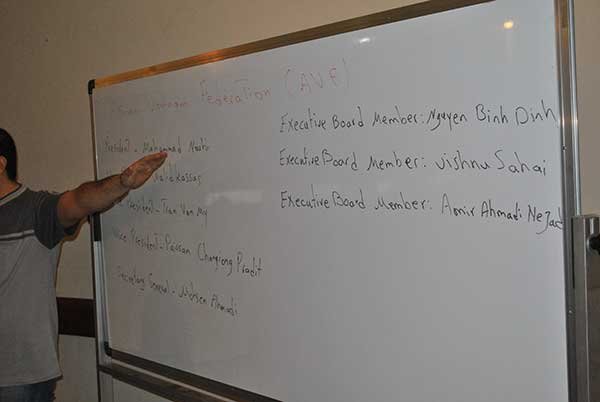 Vovinam Federation (AVF)
President - Mahammad
Majid Kassas
President - Tran Van My
Vice President - Passan Changiong Pradit
Secretary General - Mohsen Ahmadi
Executive Board Member: Nguyen Binh Dinh
Executive Board Member: Vishnu Sahai
Executive Board Member: Amir Ahmadi Nejad